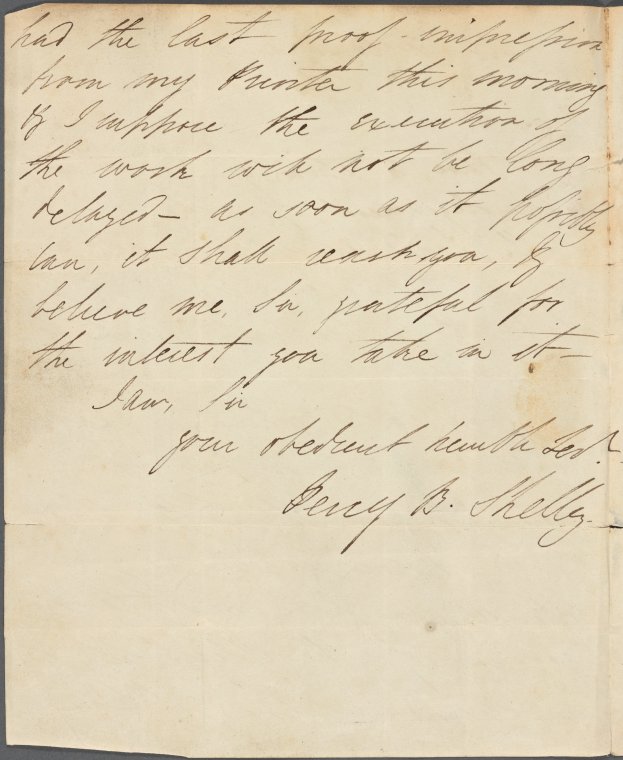 had the last proof-impression
from my Printer this morning
& I suppose the execution of
the work will not be long
delayed— as soon as it possibly
can, it shall reach you, &
believe me, Sir, grateful for
the interest you take in it—
I am, Sir
your obedient humble Servt.
Percy B. Shelley—